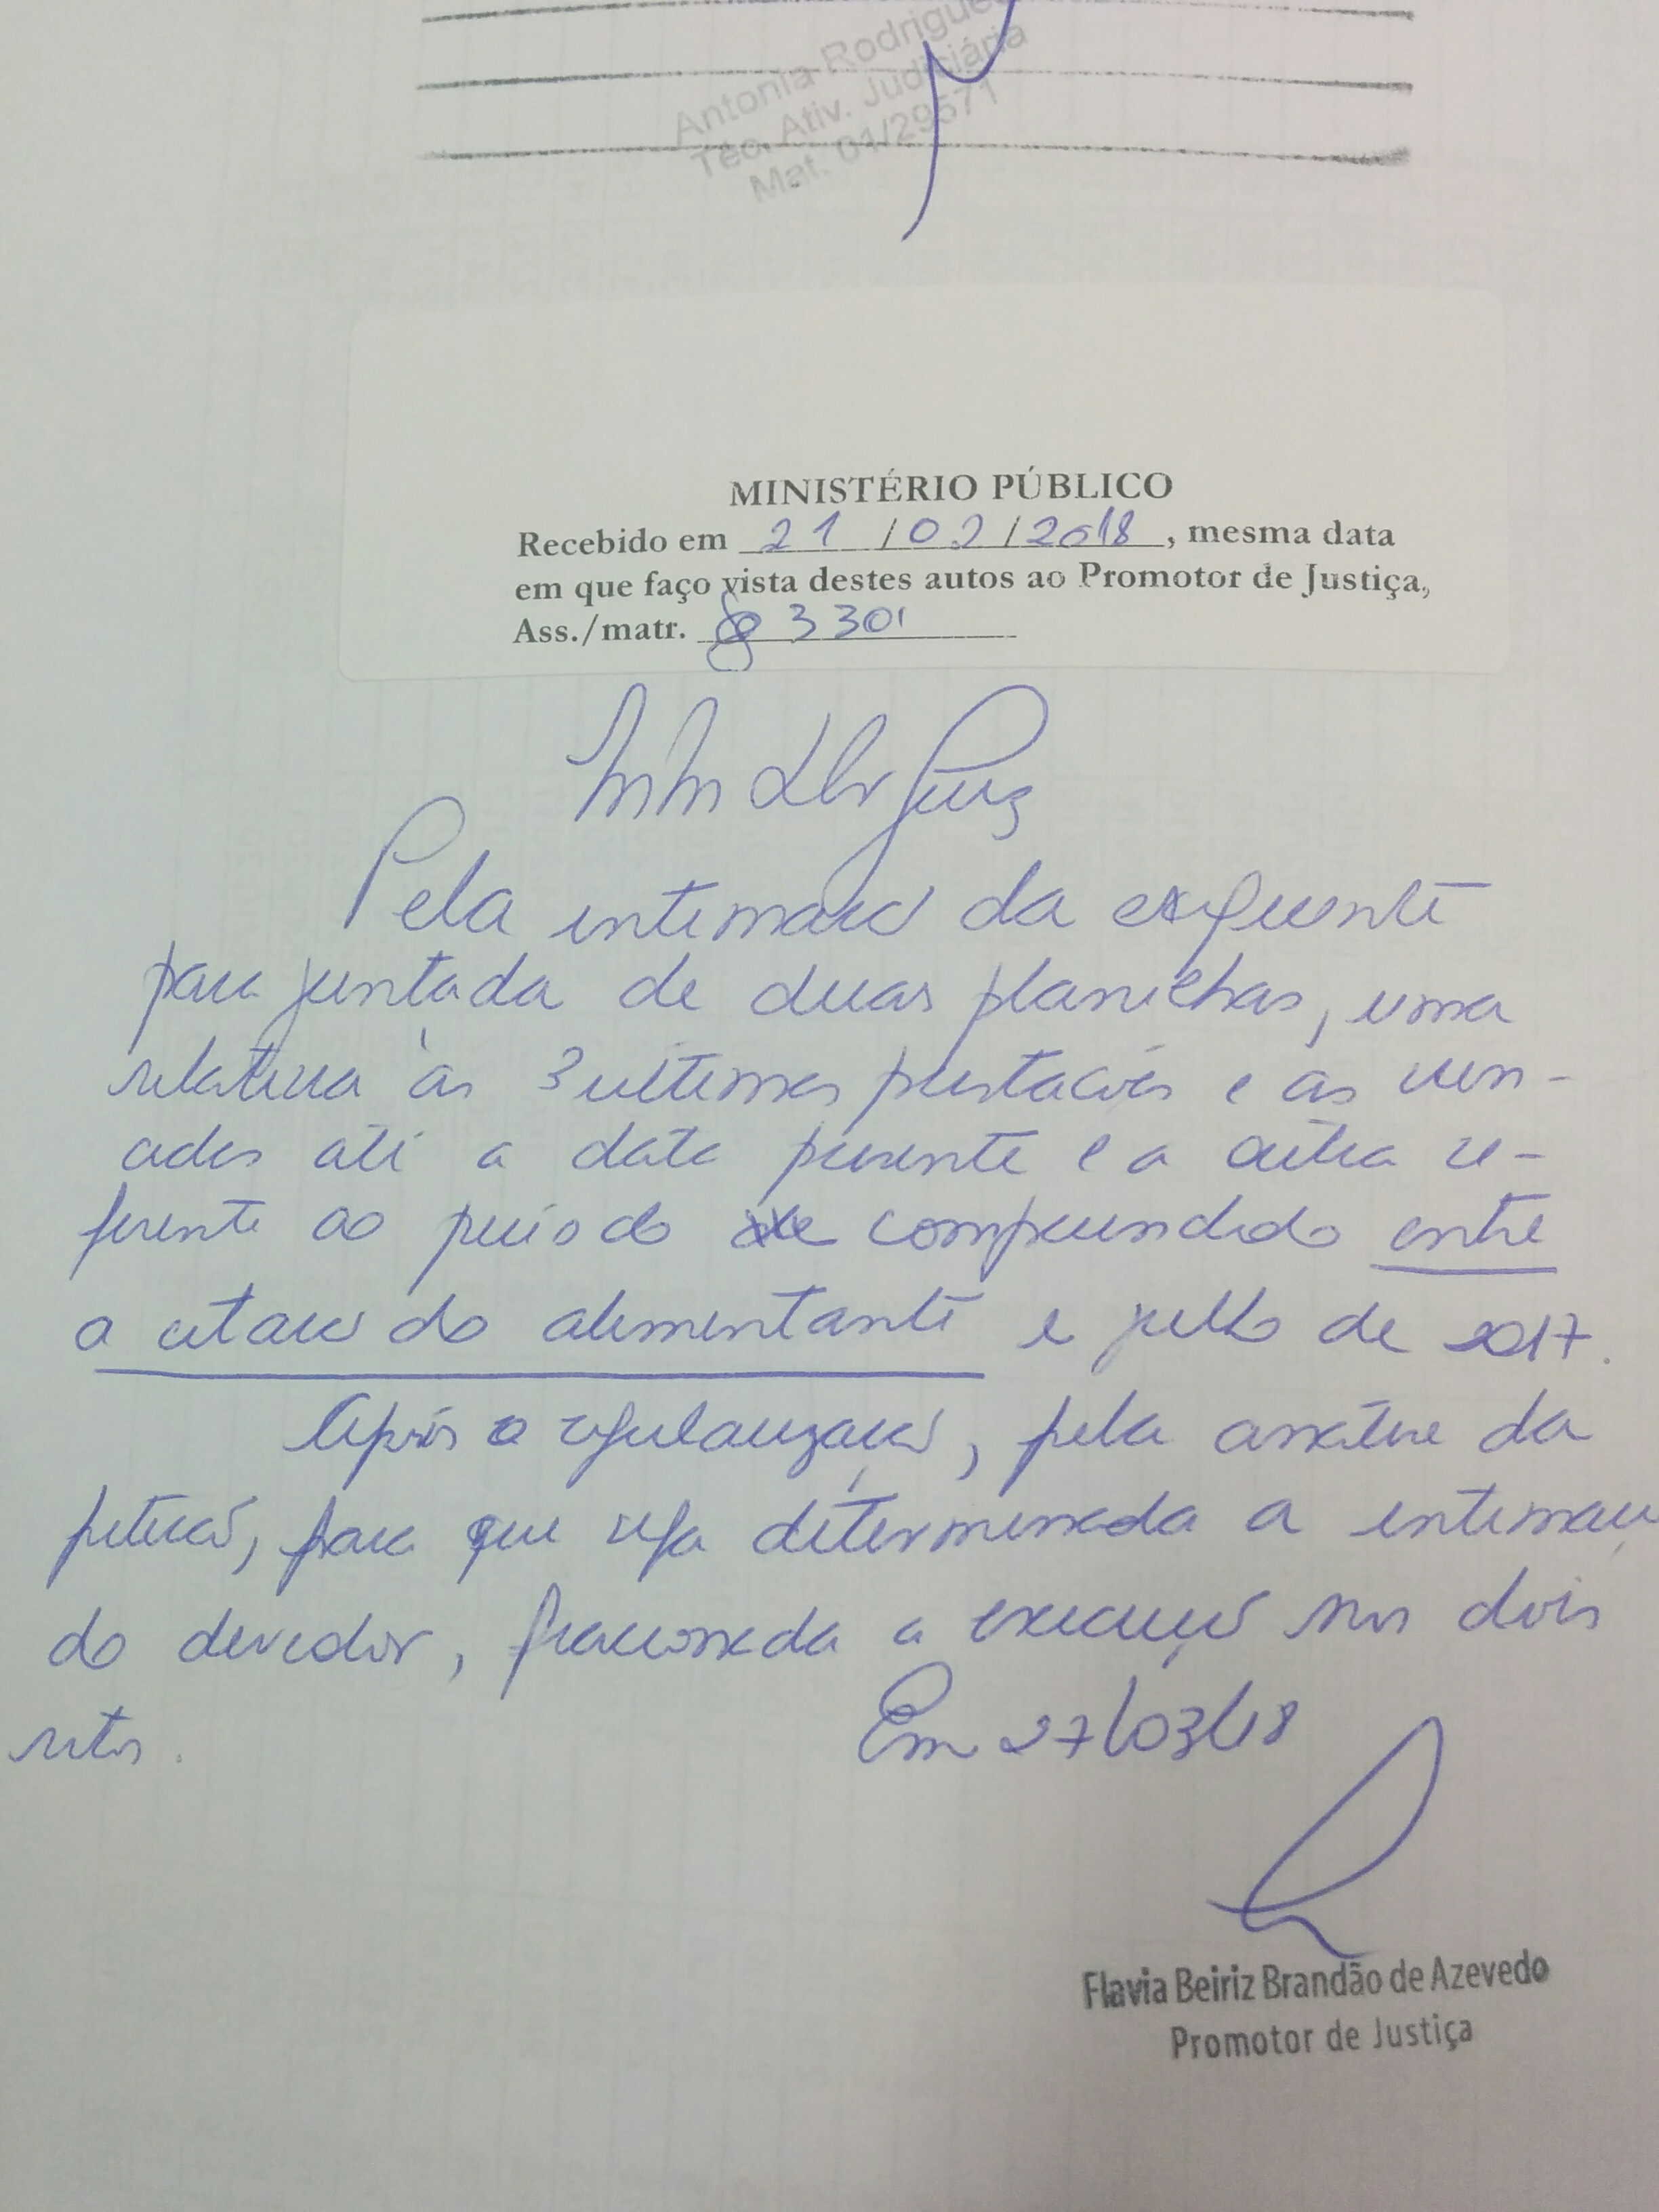 Antonia Rodrigues
Téc. Ativ. Judiciária
Mat. 01/29571
MINISTÉRIO PÚBLICO
Recebido em 21/02/2018, mesma data
em que faço vista destes autos ao Promotor de Justiça,
Ass./matr. 3301
MM Dr Juiz
Pela intimação da exequente
para juntada de duas planilhas, uma
relativa às 3 últimas prestações e as ven-
cidas até a data presente e a outra re-
ferente ao período compreendido entre
a citação do alimentante e julho de 2017.
Após a regularização, pela análise da
petição, para que seja determinada a intimação
do devedor, fracionada a execução nos dois
ritos.
Em 27/03/18
Flavia Beiriz Brandão de Azevedo
Promotor de Justiça